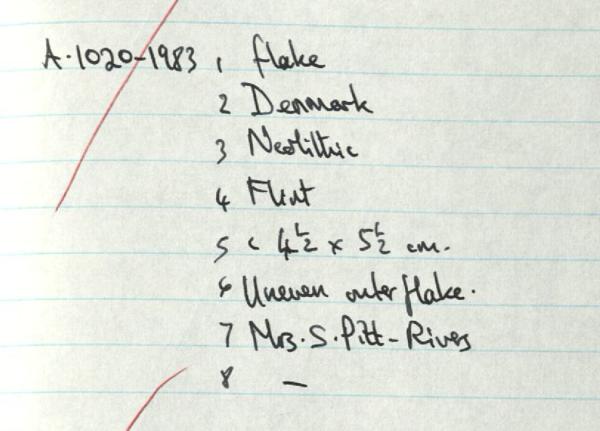 A.1020-1983 1 flake
2 Denmark
3 Neolithic
4 Flint
5 c 4½ x 5½ cm.
6 Uneven outer flake.
7 Mrs. S. Pitt-Rivers
8 —